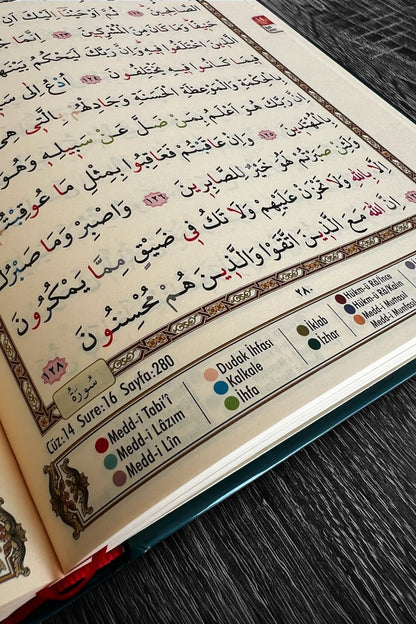 الصَّالِحِينَ ثُمَّ أَوْحَيْنَا إِلَيْكَ
حَنِيفًا وَمَا كَانَ مِنَ الْمُشْرِكِينَ ﴿١٢٣﴾ إِنَّمَا
الَّذِينَ اخْتَلَفُوا فِيهِ وَإِنَّ رَبَّكَ لَيَحْكُمُ
كَانُوا فِيهِ يَخْتَلِفُونَ ﴿١٢٤﴾ أُدْعُ إِلَى
بِالْحِكْمَةِ وَالْمَوْعِظَةِ الْحَسَنَةِ وَجَادِلْهُمْ بِالَّتِي هِيَ
إِنَّ رَبَّكَ هُوَ أَعْلَمُ بِمَنْ ضَلَّ عَنْ سَبِيلِهِ وَهُوَ
بِالْمُهْتَدِينَ ﴿١٢٥﴾ وَإِنْ عَاقَبْتُمْ فَعَاقِبُوا بِمِثْلِ مَا عُوقِبْتُمْ
وَلَئِنْ صَبَرْتُمْ لَهُوَ خَيْرٌ لِلصَّابِرِينَ ﴿١٢٦﴾ وَاصْبِرْ وَمَا صَبْرُكَ
إِلَّا بِاللهِ وَلَا تَحْزَنْ عَلَيْهِمْ وَلَا تَكُ فِي ضَيْقٍ مِمَّا يَمْكُرُونَ
إِنَّ اللهَ مَعَ الَّذِينَ اتَّقَوْا وَالَّذِينَ هُمْ مُحْسِنُونَ ﴿١٢٨﴾
٢٨٠
سُورَةُ
Cüz:14 Sure:16 Sayfa:280
Medd-i Tabi'î
Medd-i Lâzım
Medd-i Lîn
Dudak İhfası
Kalkale
İhfa
İklab
İzhar
Hükm-ü Râ/İnce
Hükm-ü Râ/Kalın
Medd-i Muttasıl